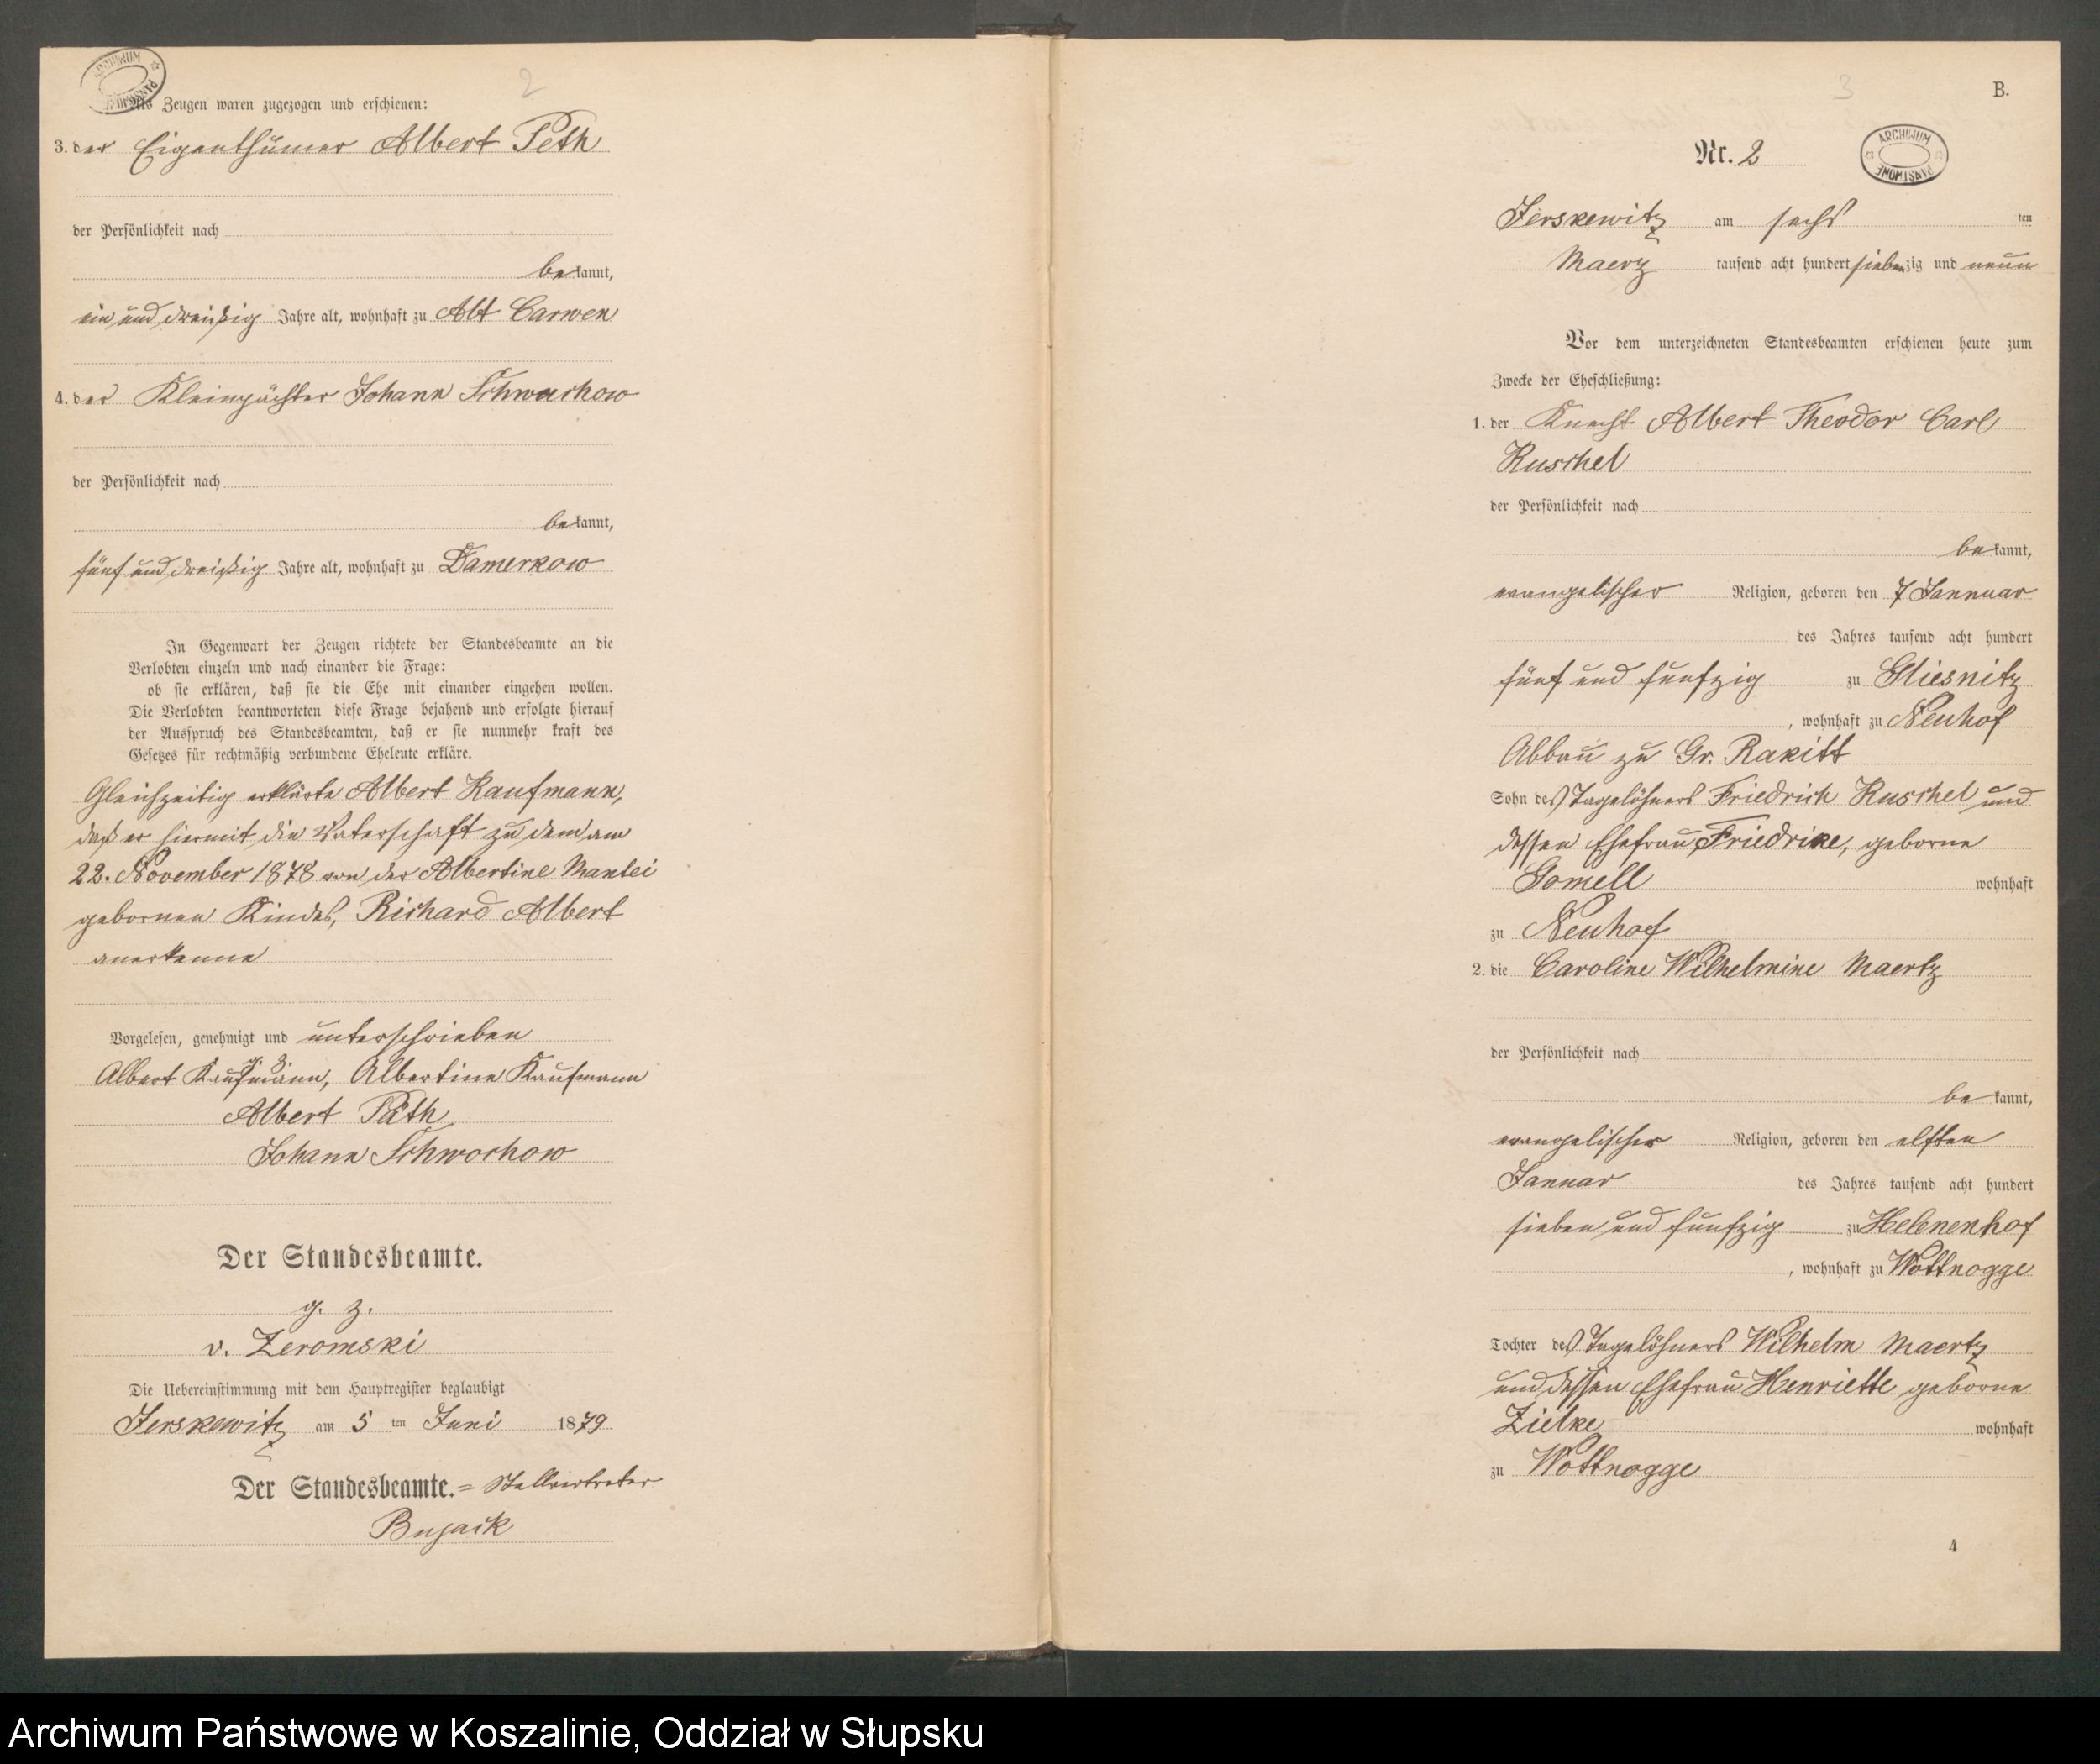 2
ARCHIWUM PAŃSTWOWE
Als Zeugen waren zugezogen und erschienen:
3. der Eigenthümer Albert Peth
der Persönlichkeit nach
bekannt,
ein und dreißig Jahre alt, wohnhaft zu Alt Carwen
4. der Kleinpächter Johann Schwochow
der Persönlichkeit nach
bekannt,
fünf und dreißig Jahre alt, wohnhaft zu Damerkow
In Gegenwart der Zeugen richtete der Standesbeamte an die
Verlobten einzeln und nach einander die Frage:
ob sie erklären, daß sie die Ehe mit einander eingehen wollen.
Die Verlobten beantworteten diese Frage bejahend und erfolgte hierauf
der Ausspruch des Standesbeamten, daß er sie nunmehr kraft des
Gesetzes für rechtmäßig verbundene Eheleute erkläre.
Gleichzeitig erklärte Albert Kaufmann,
daß er hiermit die Vaterschaft zu dem am
22. November 1878 von der Albertine Mantei
gebornen Kindes, Richard Albert
anerkenne
Vorgelesen, genehmigt und unterschrieben
Albert Kaufmann, Albertine Kaufmann
Albert Päth
Johann Schwochow
Der Standesbeamte.
g. z.
v. Zeromski
Die Uebereinstimmung mit dem Hauptregister beglaubigt
Jerskewitz am 5 ten Juni 1879
Der Standesbeamte. = Stellvertreter
Bujack
3
B.
Nr. 2
ARCHIWUM PAŃSTWOWE
Jerskewitz am sechs ten
Maerz tausend acht hundert siebenzig und neun
Vor dem unterzeichneten Standesbeamten erschienen heute zum
Zwecke der Eheschließung:
1. der Knecht Albert Theodor Carl
Kuschel
der Persönlichkeit nach
bekannt,
evangelischer Religion, geboren den 7 Jannuar
des Jahres tausend acht hundert
fünf und funfzig zu Gliesnitz
, wohnhaft zu Neuhof
Abbau zu Gr. Rakitt
Sohn des Tagelöhners Friedrich Kuschel und
dessen Ehefrau Friedrike, geborne
Gomell wohnhaft
zu Neuhof
2. die Caroline Wilhelmine Maertz
der Persönlichkeit nach
bekannt,
evangelischer Religion, geboren den elften
Januar des Jahres tausend acht hundert
sieben und funfzig zu Helenenhof
, wohnhaft zu Wottnogge
Tochter des Tagelöhners Wilhelm Maertz
und dessen Ehefrau Henriette geborne
Zielke wohnhaft
zu Wottnogge
4
Archiwum Państwowe w Koszalinie, Oddział w Słupsku